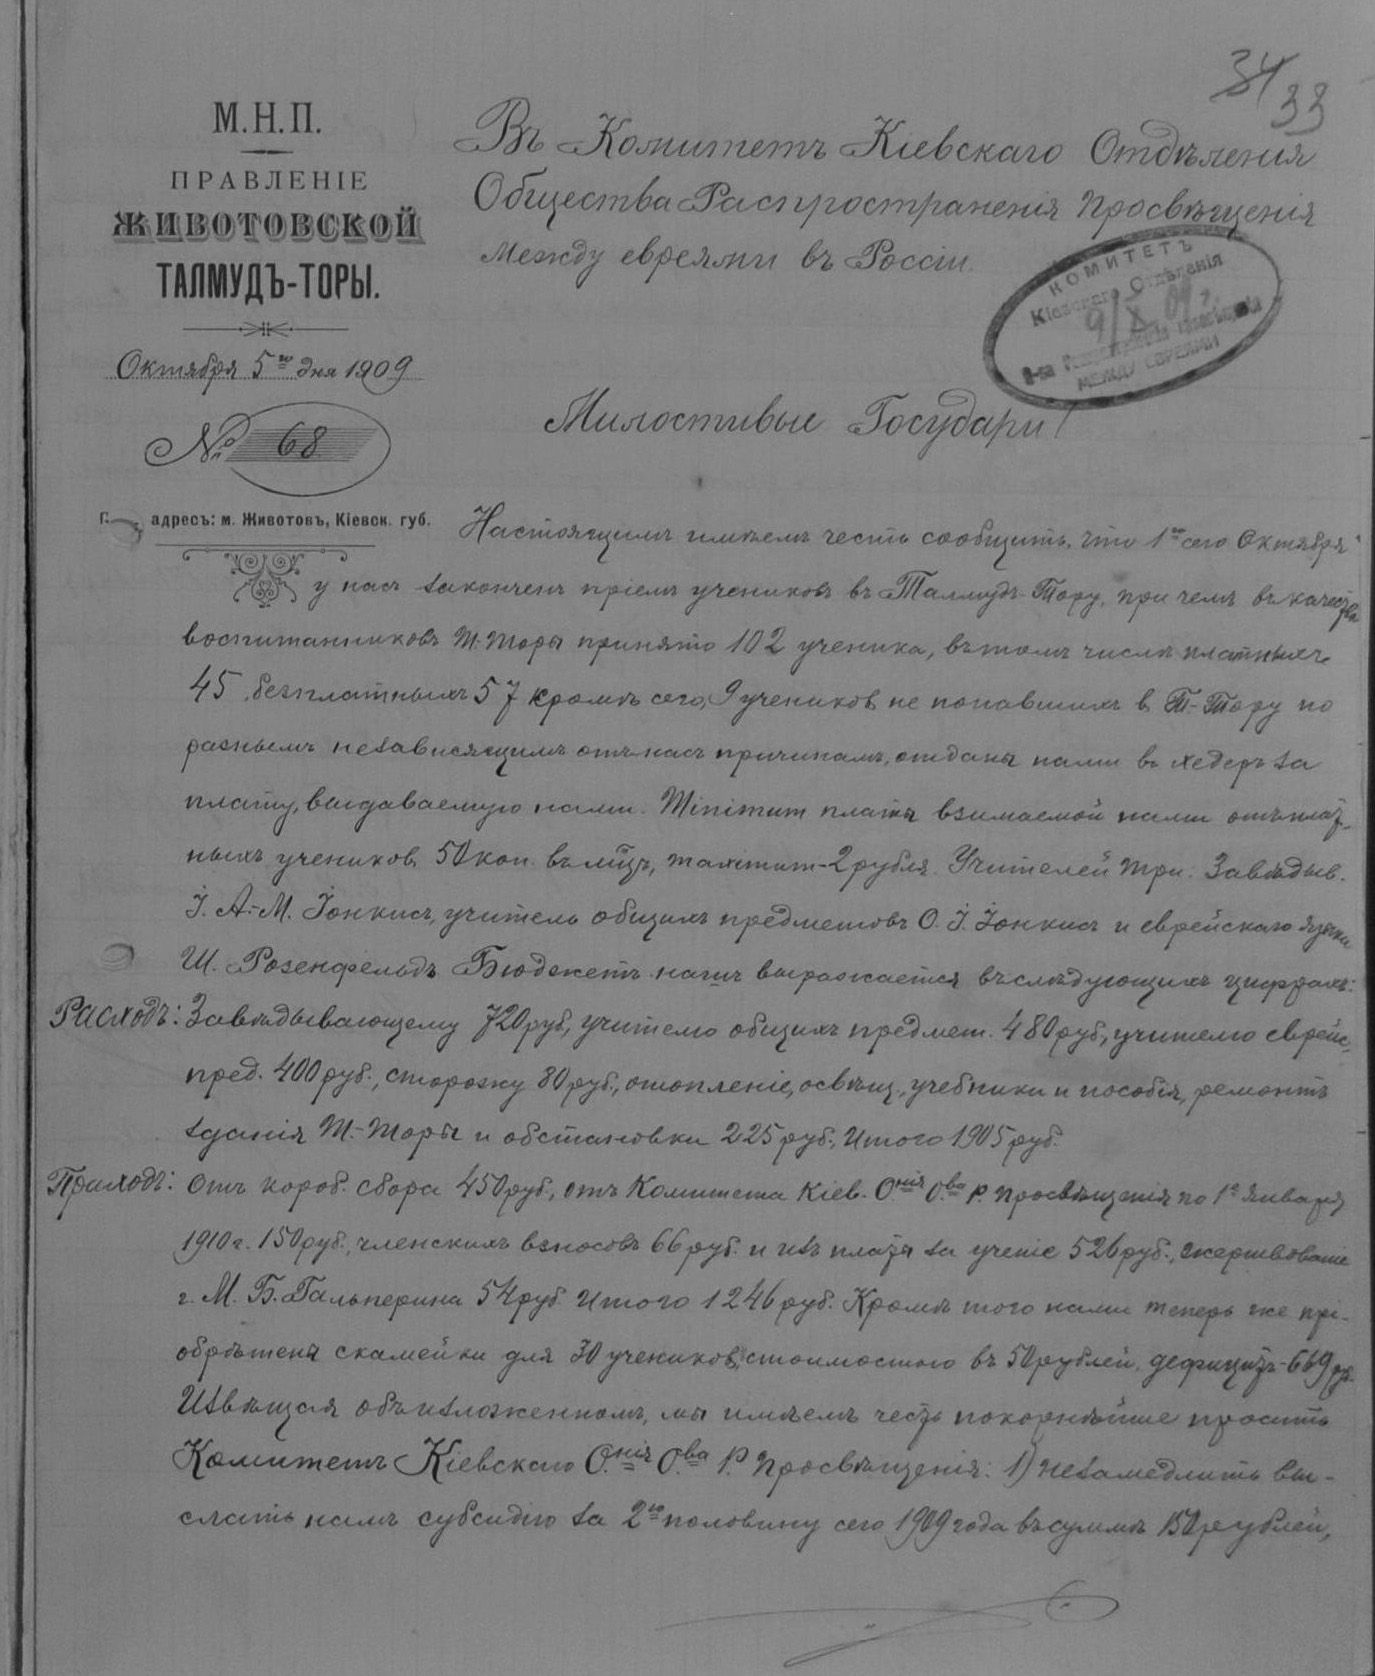 34
33
М.Н.П.
ПРАВЛЕНІЕ
ЖИВОТОВСКОЙ
ТАЛМУДЪ-ТОРЫ.
Октября 5го дня 1909
№ 68
адресъ: м. Животовъ, Кіевск. губ.
Въ Комитетъ Кіевскаго Отдѣленія
Общества Распространенія Просвѣщенія
между евреями въ Россіи.
КОМИТЕТЪ
Кіевскаго Отдѣленія
9/X 09 г.
О-ва Распространенія Просвѣщенія
МЕЖДУ ЕВРЕЯМИ
Милостивые Государи!
Настоящимъ имѣемъ честь сообщить, что 1го сего Октября
у насъ законченъ пріемъ учениковъ въ Талмудъ-Тору, при чемъ въ качеств
воспитанниковъ Т.-Торы принято 102 ученика, въ томъ числѣ платныхъ
45, безплатныхъ 57 кромѣ сего, 9 учениковъ не попавшихъ в Т-Тору по
разнымъ независящимъ отъ насъ причинамъ, отданы нами въ хедеръ за
плату, выдаваемую нами. Minimum платы взимаемой нами отъ плат-
ныхъ учениковъ 50 коп. въ мѣц, maximum-2 рубля. Учителей три: Завѣдыв.
І. А.-М. Іонкисъ, учитель общихъ предметовъ О. І. Іонкисъ и еврейскаго языка
Ш. Розенфельдъ Бюджетъ нашъ выражается въ слѣдующихъ цифрахъ:
Расходъ: Завѣдывающему 720 руб, учителю общихъ предмет. 480 руб, учителю еврейс.
пред. 400 руб., сторожу 80 руб., отопленіе, освѣщ., учебники и пособія, ремонтъ
зданія Т.-Торы и обстановки 225 руб., Итого 1905 руб.
Приходъ: Отъ короб. сбора 450 руб., отъ Комитета Кіев. О.нія О.ва Р. Просвѣщенія по 1е Января
1910 г. 150 руб., членскихъ взносовъ 66 руб. и изъ платы за ученіе 526 руб., жертвованіе
г. М. Б. Гальперина 54 руб. Итого 1246 руб. Кромѣ того нами теперь же прі-
обрѣтены скамейки для 30 учениковъ, стоимостью въ 50 рублей, дефицитъ-669 руб.
Извѣщая объ изложенномъ, мы имѣемъ честь покорнѣйше просить
Комитетъ Кіевскаго О.нія О.ва Р. Просвѣщенія: 1) незамедлить вы-
слать намъ субсидію за 2ю половину сего 1909 года въ суммѣ 150 рублей,